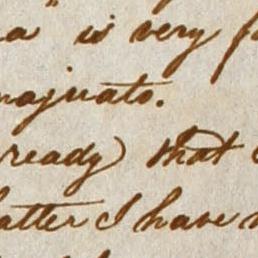 a" is very
najuato.
ready that
latter I have